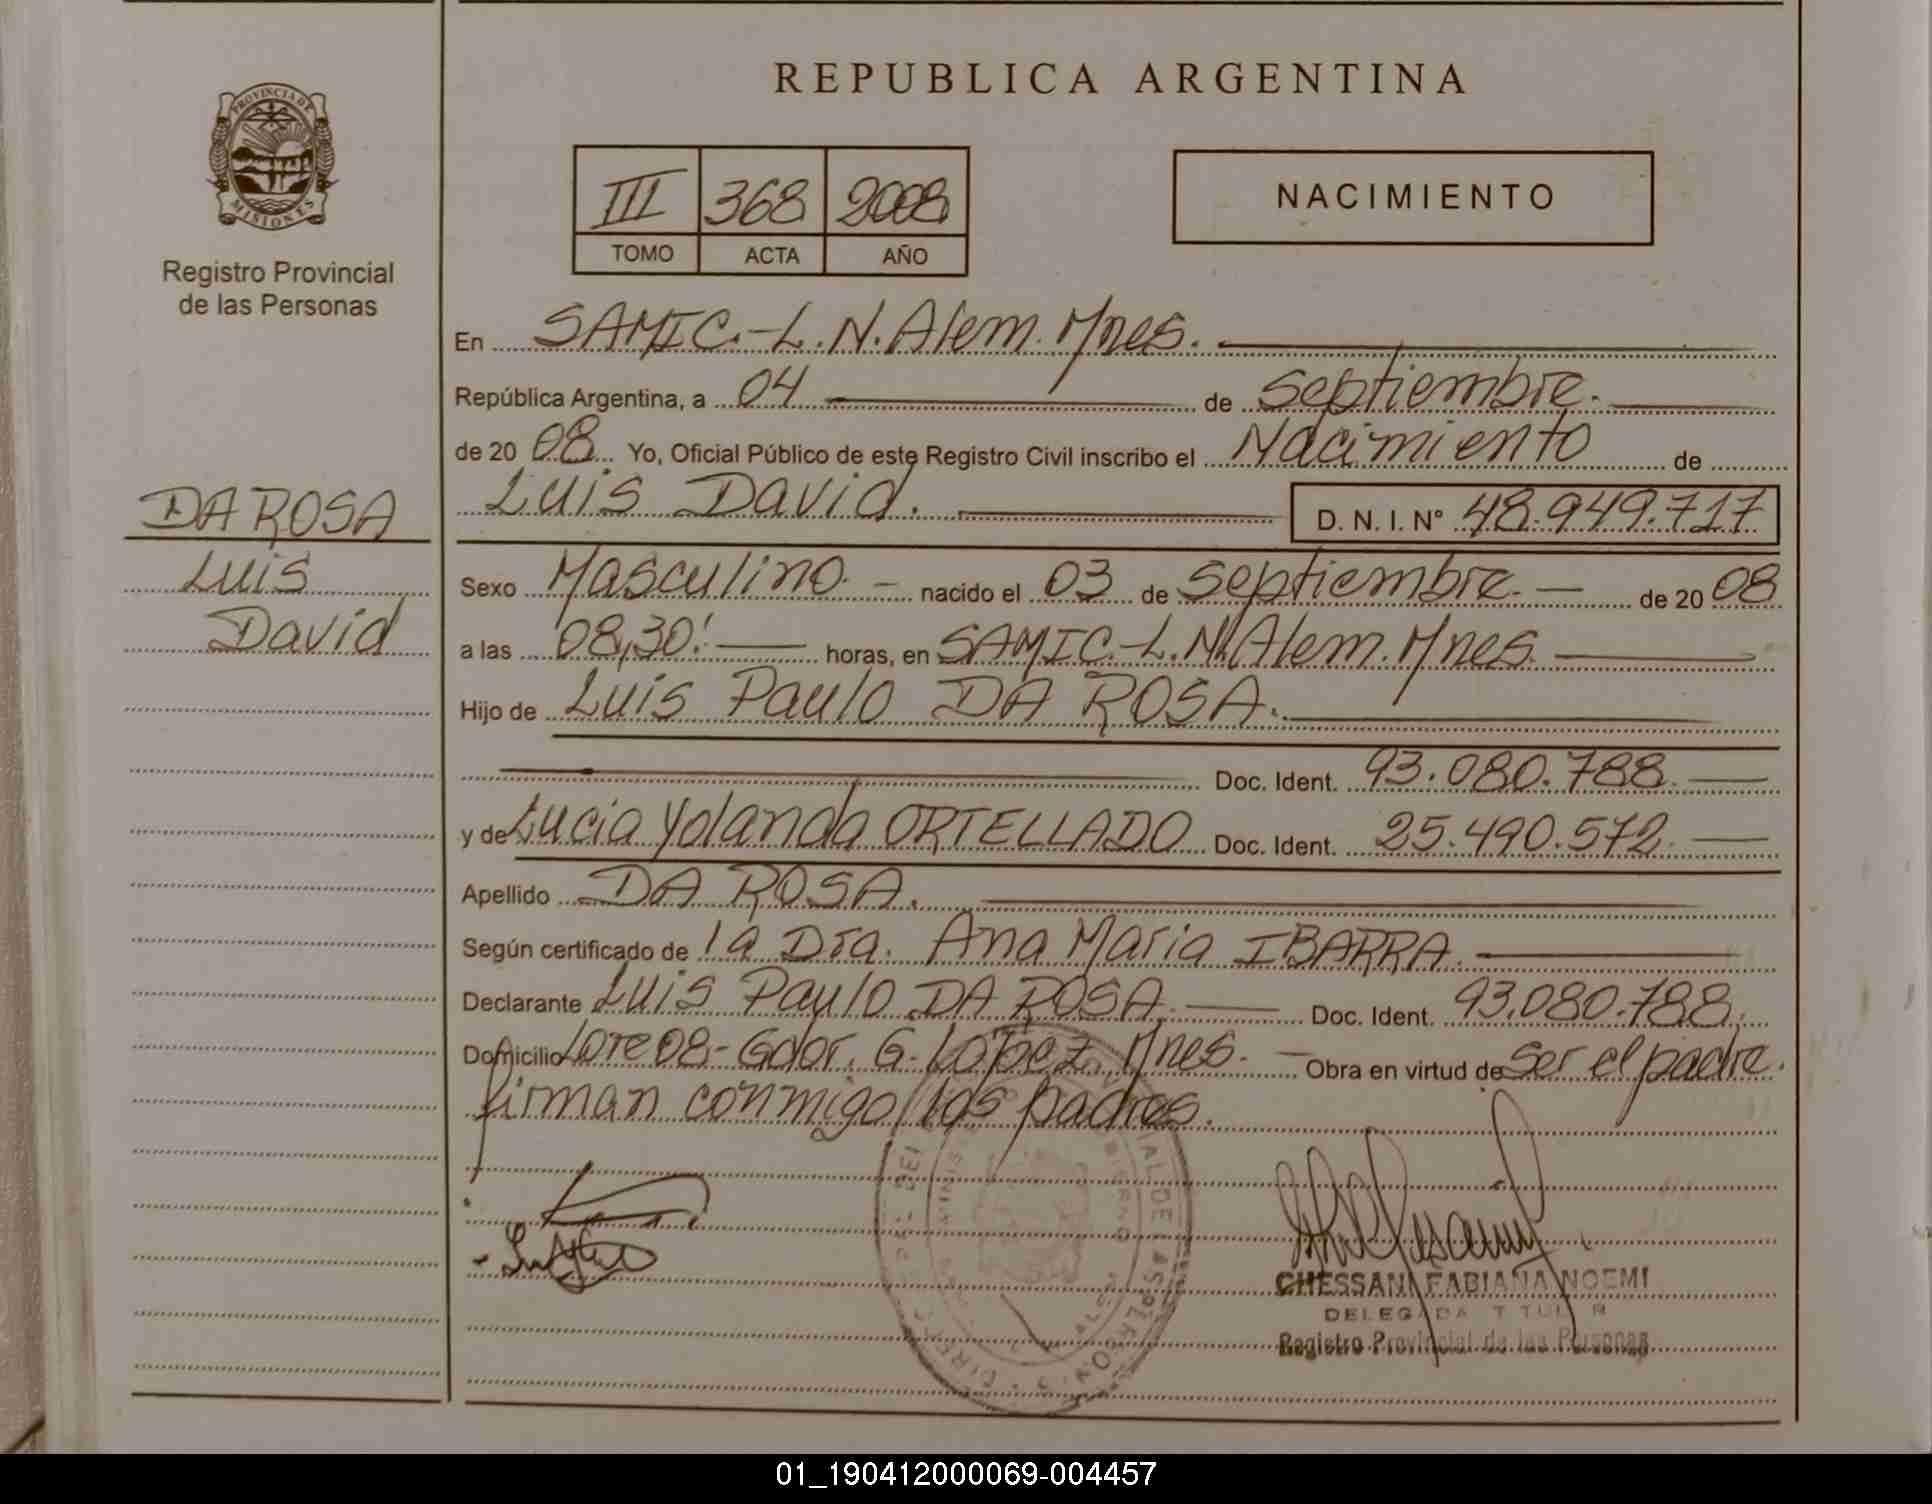 REPUBLICA ARGENTINA
PROVINCIA DE
MISIONES
Registro Provincial
de las Personas
III 368 2008
TOMO ACTA AÑO
NACIMIENTO
En SAMIC.-L.N.Alem.Mnes.
República Argentina, a 04 de Septiembre.
de 20 08 Yo, Oficial Público de este Registro Civil inscribo el Nacimiento de
Luis David. D. N. I. Nº 48.949.717
DA ROSA
Luis
David
Sexo Masculino. - nacido el 03 de Septiembre. - de 20 08
a las 08,30! horas, en SAMIC.-L.N.Alem.Mnes.
Hijo de Luis Paulo DA ROSA.
Doc. Ident. 93.080.788.
y de Lucia Yolanda ORTELLADO Doc. Ident. 25.490.572.
Apellido DA ROSA.
Según certificado de la Dra. Ana Maria IBARRA.
Declarante Luis Paulo DA ROSA. Doc. Ident. 93.080.788.
Domicilio Lote 08-Gdor. G. López. Mnes. - Obra en virtud de ser el padre.
firman conmigo los padres.
CHESSANI FABIANA NOEMI
DELEGADA TITULAR
Registro Provincial de las Personas
01_190412000069-004457